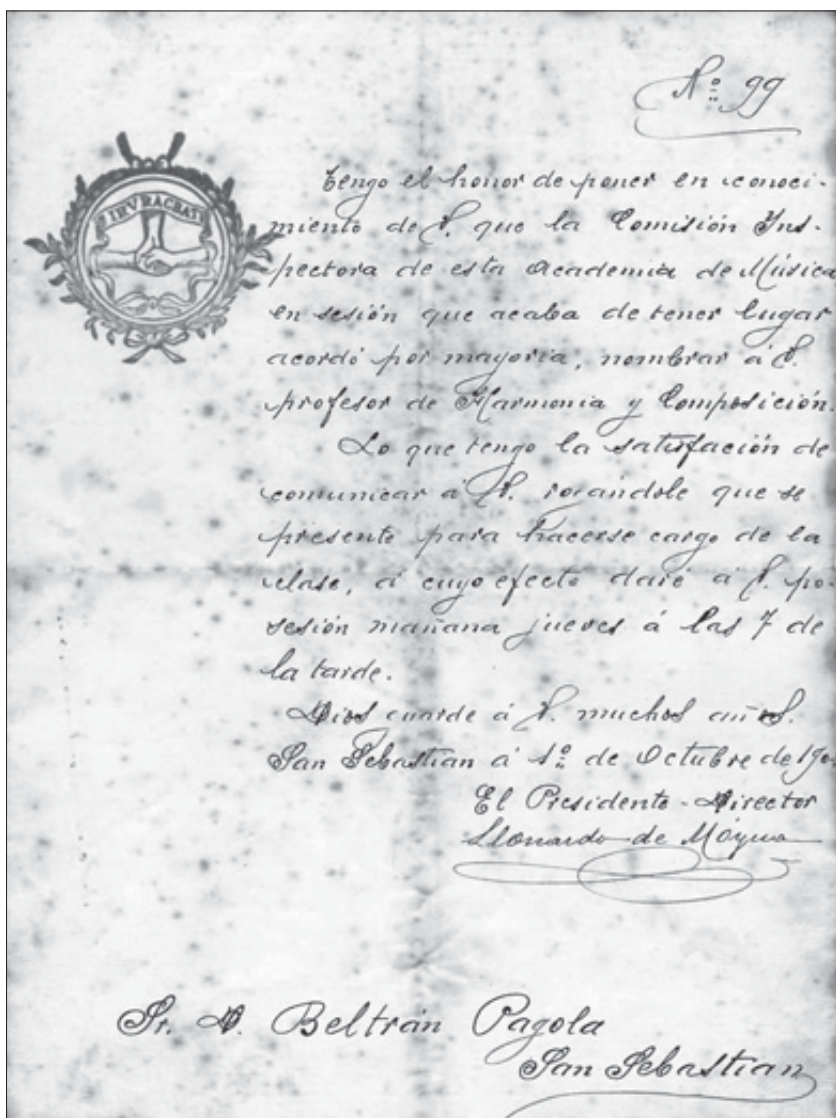 Nº 99
IRVRACBAT
Tengo el honor de poner en conoci-
miento de V. que la Comisión Ins-
pectora de esta Academia de Música
en sesión que acaba de tener lugar
acordó por mayoria, nombrar á V.
profesor de Harmonia y Composición.
Lo que tengo la satisfación de
comunicar á V. rogándole que se
presente para hacerse cargo de la
clase, á cuyo efecto daré á V. po-
sesión mañana jueves á las 7 de
la tarde.
Dios guarde á V. muchos años.
San Sebastian á 1º de Octubre de 190
El Presidente-Director
de Moyua
Sr. D. Beltrán Pagola
San Sebastian